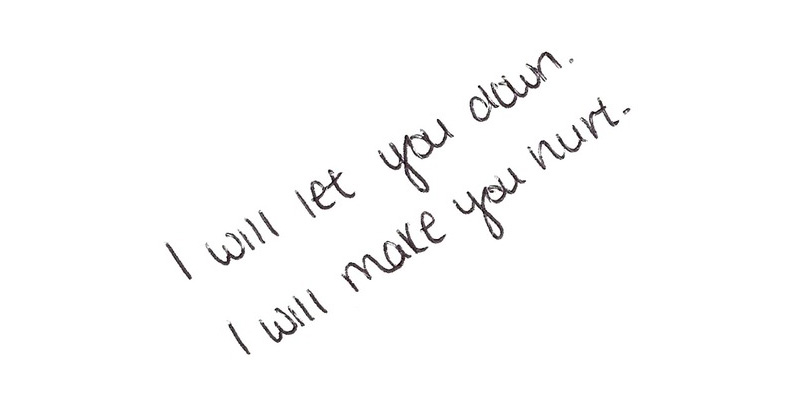 I will let you down.
I will make you hurt.